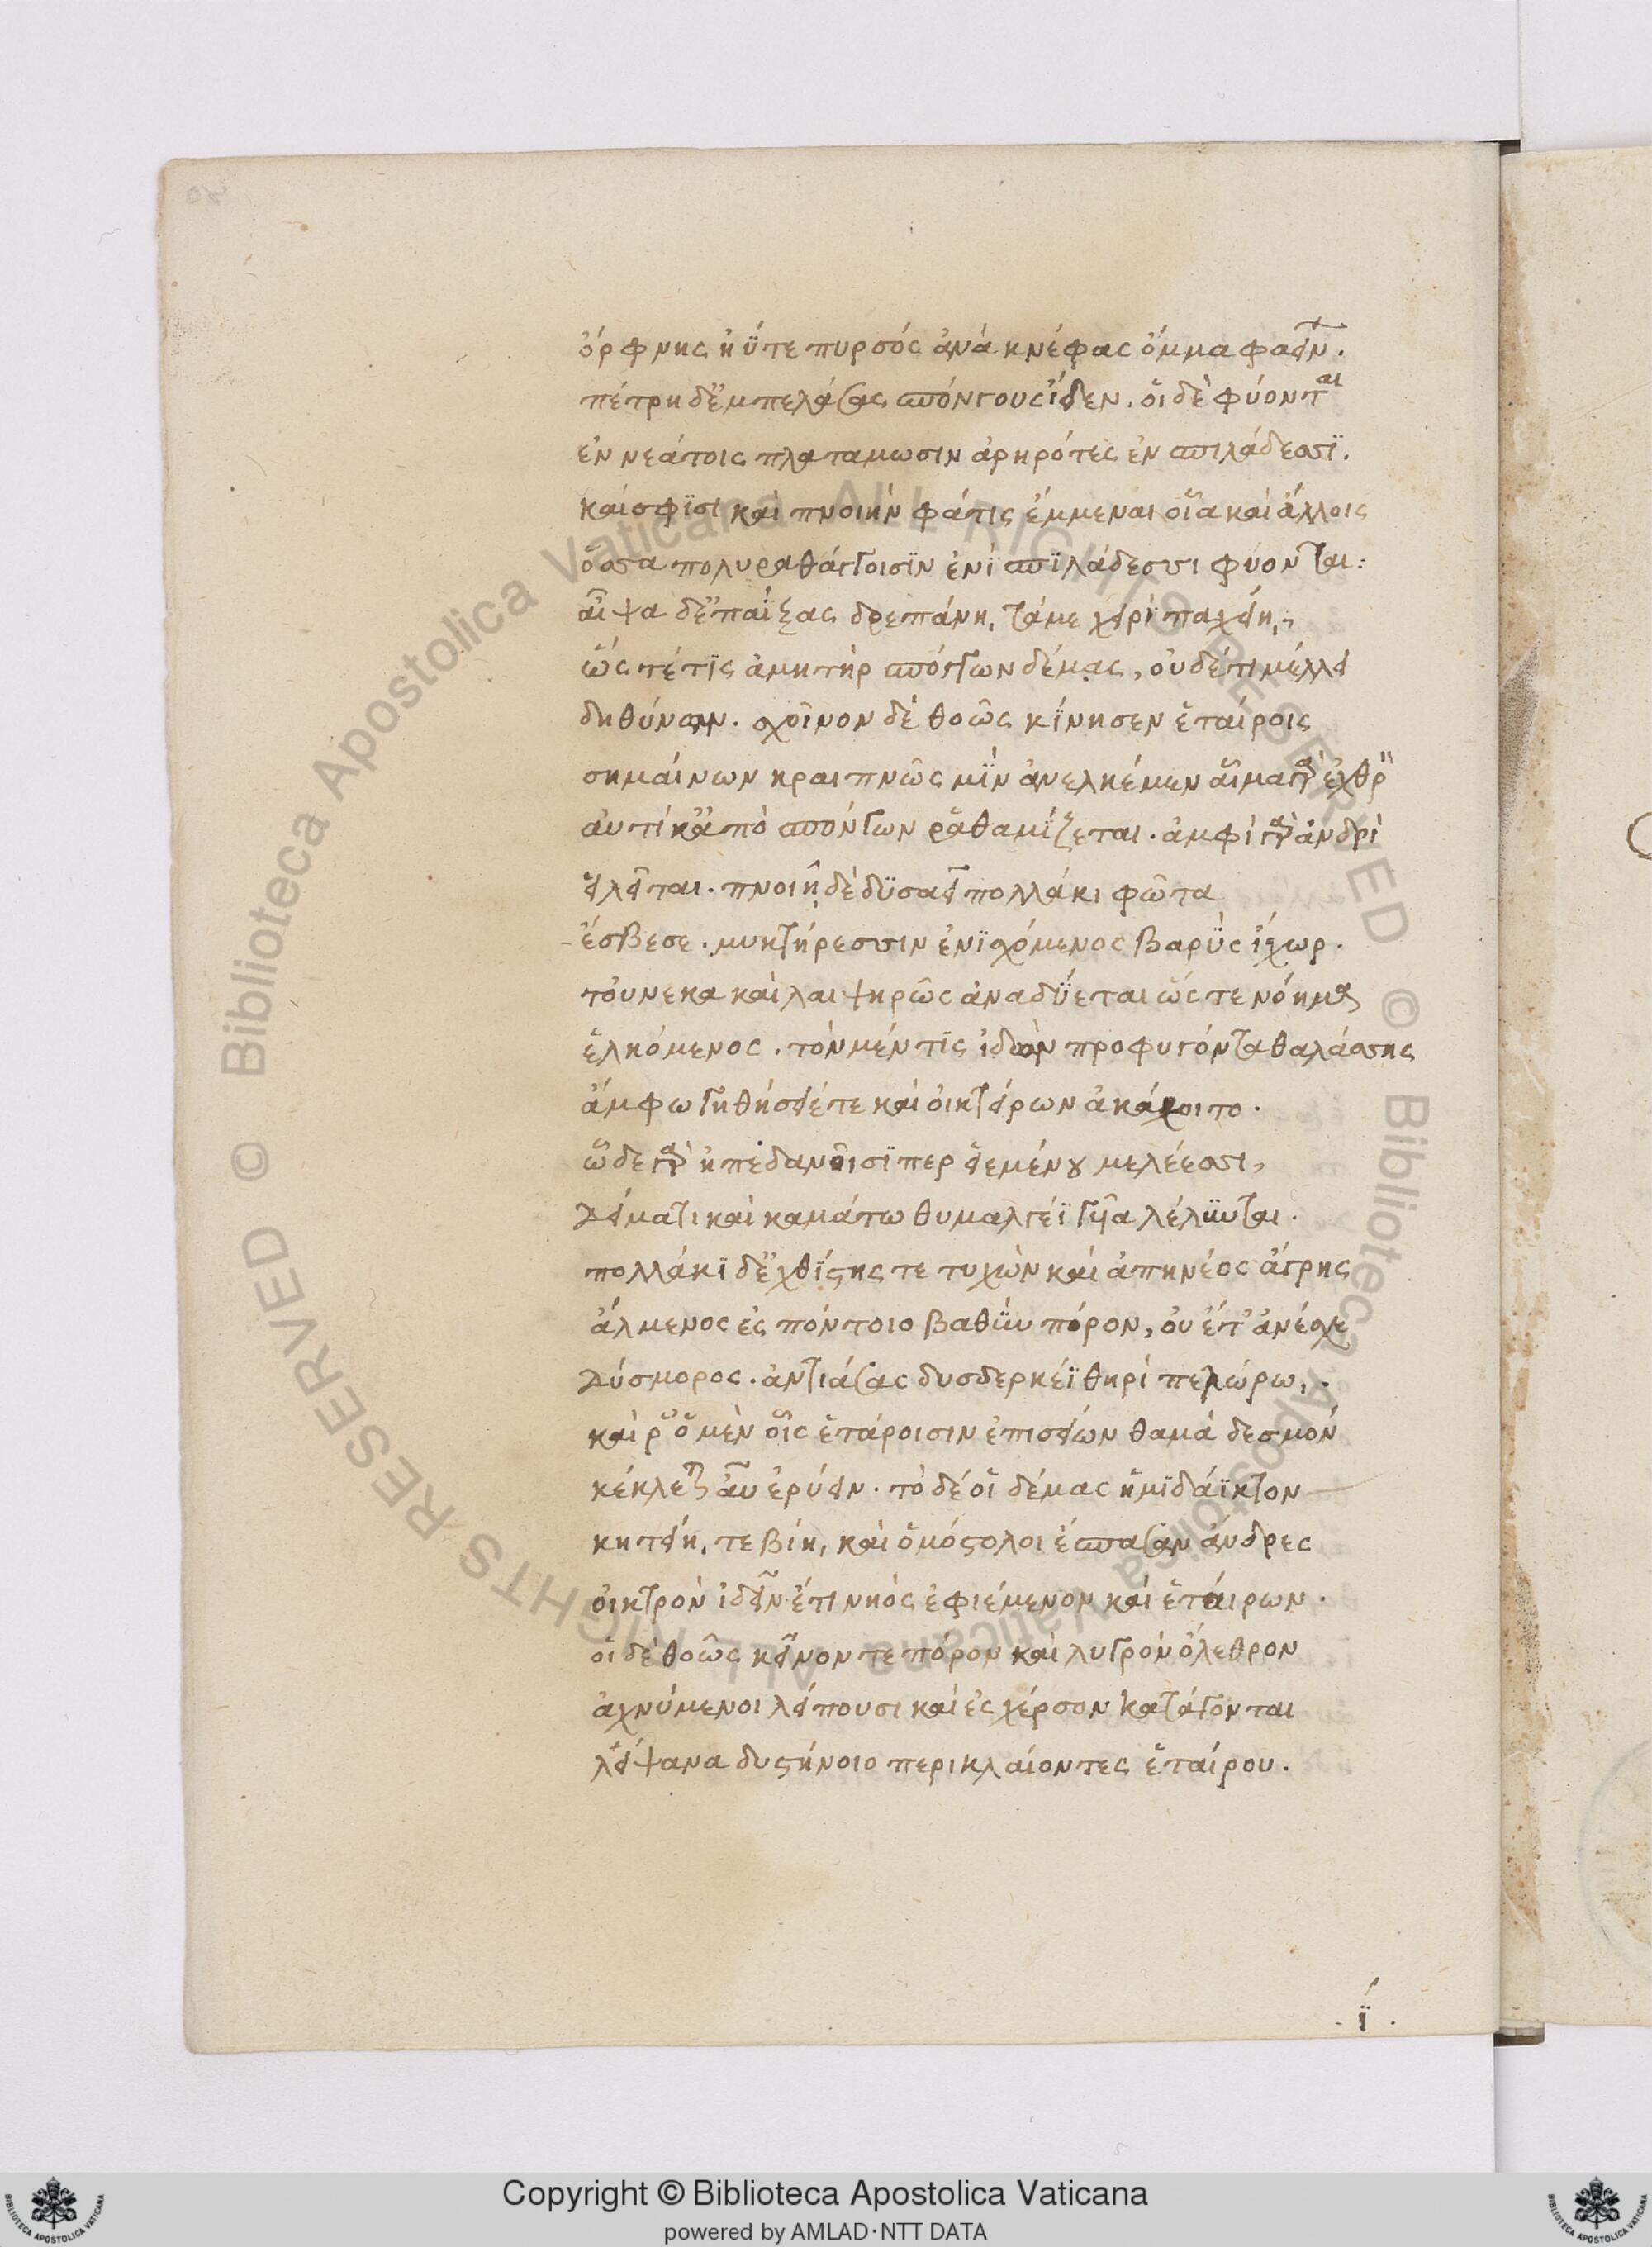 ὄρφνης ἠΰτε πυρσός ἀνὰ κνέφας ὄμμα φαεῖν.
πέτρη δ᾽ ἐμπελάσας σπόγγους ἴδεν. οἱ δὲ φύονται
ἐν νεάτοις πλαταμωσιν ἀρηρότες ἐν σπιλάδεσσϊ.
καί σφϊσι καὶ πνοιὴν φάτις ἔμμεναι οἷα καὶ ἄλλοις
ὅσσα πολυραθάγοισϊν ἐνὶ σπϊλάδεσσι φύονται:
αἶψα δ᾽ ἐπαΐξας δρεπάνη, τάμε χειρὶ παχείη,
ὥς τέ τϊς ἀμητὴρ σπόγγων δέμας, οὐδέ τι μέλλει
δηθύνων. σχοῖνον δὲ θοῶς κίνησεν ἑταίροις
σημαίνων κραιπνῶς μϊν ἀνελκέμεν αἷμα γὰρ ἐχθρὸν
αὐτίκ᾽ ἀπὸ σπόγγων ῥαθαμίζεται. ἀμφὶ γὰρ ἀνδρὶ
εἱλεῖται. πνοιῆ δὲ δϋσαεῖ πολλάκι φῶτα
ἔσβεσε. μυκτήρεσσιν ἐνϊσχόμενος βαρὺς ἰχωρ.
τοὔνεκα καὶ λαιψηρῶς ἀναδύεται ὥς τε νόημα
ἑλκόμενος. τὸν μέν τις ἰδὼν προφυγόντα θαλάσσης
ἄμφω γηθήσειέ τε καὶ οἰκτείρων ἀκάχοιτο.
ὧδε γὰρ ἠπεδανοῖσί περ εἱεμένου μελέεσσι,
Δείματι καὶ καμάτω θυμαλγέϊ γυῖα λέλυνται.
πολλάκϊ δ᾽ ἐχθίστης τε τυχὼν καὶ ἀπηνέος ἄγρης
ἄλμενος ἐς πόντοιο βαθὺν πόρον, οὐ ἔτ᾽ ἀνέσχε
Δύσμορος. ἀντιάσας δυσδερκέϊ θηρὶ πελώρω,.
καὶ ῥ᾽ ὁ μὲν οἷς ἑτάροισιν ἐπισείων θαμὰ δεσμὸν
κέκλεται ἂν ἐρύειν. τὸ δέ οἱ δέμας ἡμϊδάϊκτον
κητείη, τε βίη, καὶ ὁμόστολοι ἔσπασαν ἄνδρες
οἰκτρὸν ἰδεῖν ἔτι νηὸς ἐφιέμενον καὶ ἑταίρων.
οἱ δὲ θοῶς κεῖνον τε πόρον καὶ λυγρὸν ὄλεθρον
ἀχνύμενοι λείπουσι καὶ ἐς χέρσον κατάγονται
λείψανα δυστήνοιο περικλαίοντες ἑταίρου.
ϊ.
© Biblioteca Apostolica Vaticana ALL RIGHTS RESERVED
© Biblioteca Apostolica Vaticana ALL RIGHTS RESERVED
Copyright © Biblioteca Apostolica Vaticana
powered by AMLAD·NTT DATA